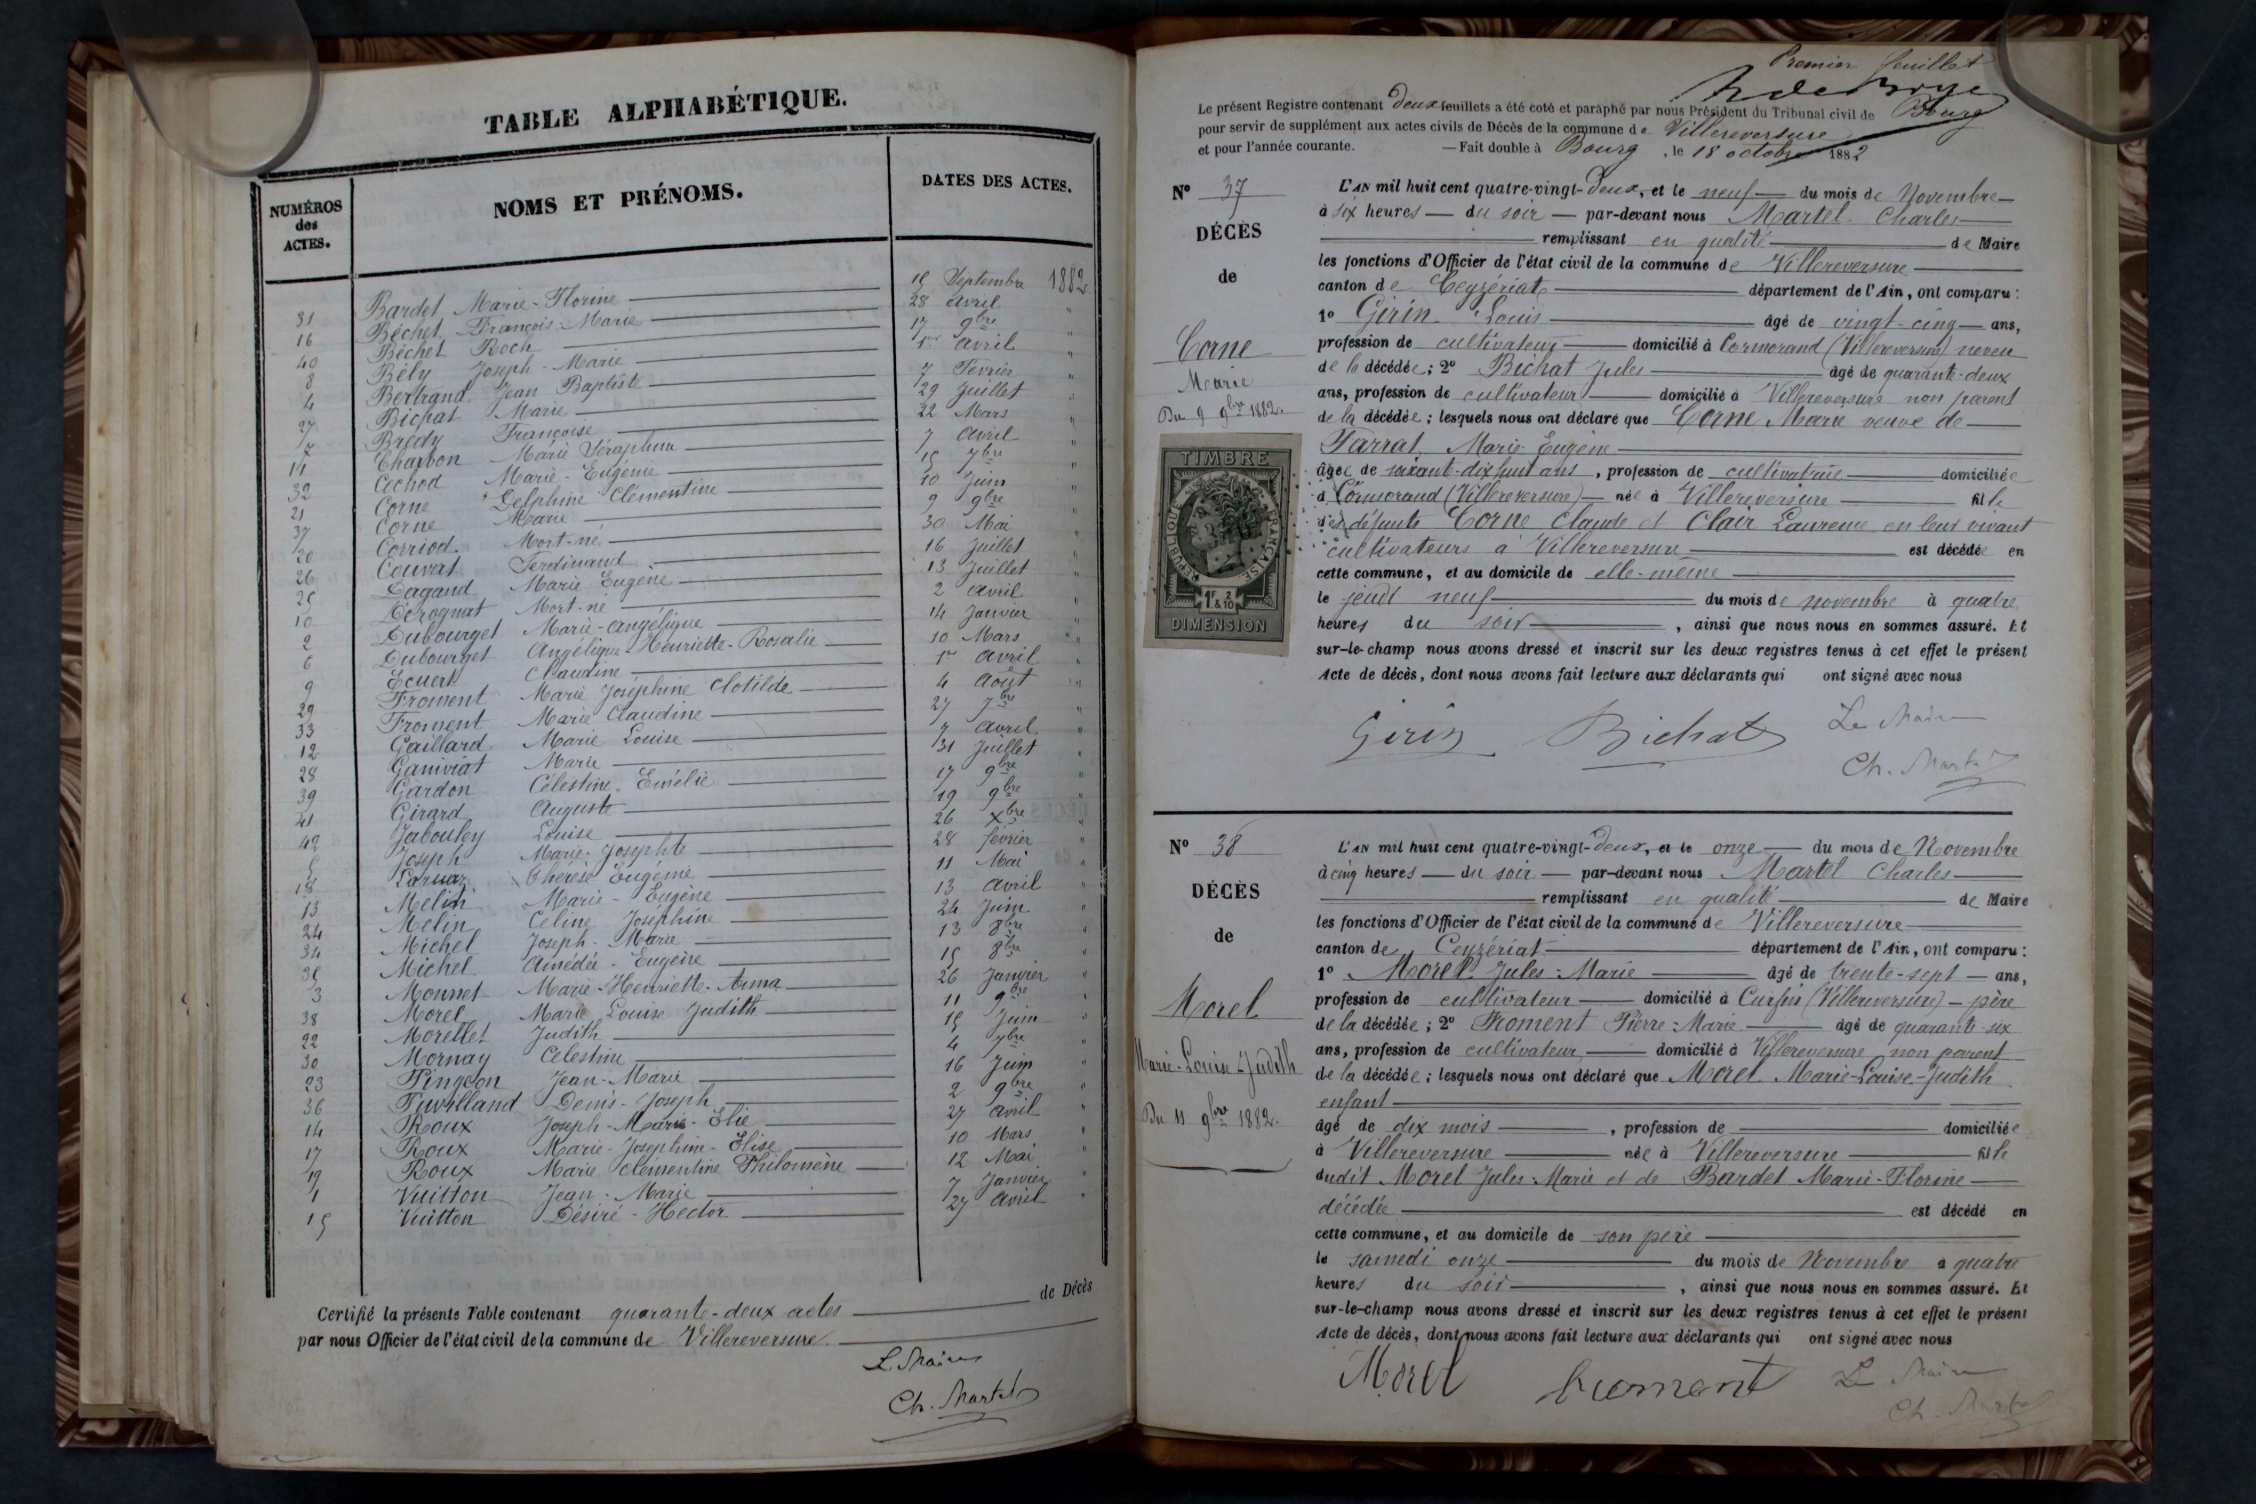 TABLE ALPHABÉTIQUE.
NUMÉROS des ACTES.
NOMS ET PRÉNOMS.
DATES DES ACTES.
31 Bardet Marie-Florine 15 Septembre 1882
16 Béchet François-Marie 28 avril "
40 Béchet Roch 17 9bre "
8 Bély Joseph-Marie 1er avril "
4 Bertrand Jean Baptiste 7 Février "
27 Bichat Marie 29 Juillet "
7 Brédy Françoise 22 Mars "
11 Charbon Marie Séraphine 7 avril "
32 Cichod Marie-Eugénie 15 7bre "
21 Corne Delphine Clémentine 10 Juin "
37 Corne Marie 9 9bre "
20 Corriod Mort-né 30 Mai "
26 Couvat Ferdinand 16 Juillet "
25 Dagand Marie Eugène 13 Juillet "
10 Dérognat Mort-né 2 avril "
2 Dubourget Marie-Angélique 14 Janvier "
6 Dubourget Angélique-Henriette-Rosalie 10 Mars "
9 Ecuert Claudine 1er avril "
29 Froment Marie Joséphine Clotilde 4 Août "
33 Froment Marie Claudine 27 7bre "
12 Gaillard Marie Louise 7 avril "
28 Ganiviat Marie 31 Juillet "
39 Gardon Célestine Emélie 17 9bre "
41 Girard Auguste 19 9bre "
42 Jabouley Louise 26 Xbre "
5 Joseph Marie-Josephte 28 février "
18 Larnaz Thérèse Eugénie 11 Mai "
13 Melin Marie-Eugène 13 avril "
24 Melin Céline Joséphine 24 Juin "
34 Michel Joseph-Marie 13 8bre "
35 Michel Amédée-Eugène 15 8bre "
3 Monnet Marie-Henriette-Anna 26 Janvier "
38 Morel Marie Louise Judith 11 9bre "
22 Morellet Judith 15 Juin "
30 Mornay Célestine 4 7bre "
23 Pingeon Jean-Marie 16 Juin "
36 Puvilland Denis-Joseph 2 9bre "
14 Roux Joseph-Marie-Elie 27 avril "
17 Roux Marie-Josephine-Elise 10 Mars "
19 Roux Marie Clémentine Philomène 12 Mai "
1 Vuitton Jean-Marie 7 Janvier "
15 Vuitton Désiré-Hector 27 avril "
Certifié la présente Table contenant quarante-deux actes de Décès
par nous Officier de l'état civil de la commune de Villereversure
Le Maire
Ch. Martel
Premier feuillet
Le présent Registre contenant deux feuillets a été coté et paraphé par nous Président du Tribunal civil de Bourg
pour servir de supplément aux actes civils de Décès de la commune de Villereversure
et pour l'année courante. — Fait double à Bourg, le 18 octobre 1882
N° 37
DÉCÈS
de
Corne
Marie
Du 9 9bre 1882.
TIMBRE
RÉPUBLIQUE FRANÇAISE
1F 2/10
& 
DIMENSION
L'AN mil huit cent quatre-vingt-deux, et le neuf du mois de Novembre
à six heures du soir par-devant nous Martel Charles
remplissant en qualité de Maire
les fonctions d'Officier de l'état civil de la commune de Villereversure
canton de Ceyzériat département de l'Ain, ont comparu :
1° Girin Louis âgé de vingt-cinq ans,
profession de cultivateur domicilié à Cormorand (Villereversure) neveu
de la décédée ; 2° Bichat Jules âgé de quarante-deux
ans, profession de cultivateur domicilié à Villereversure non parent
de la décédée ; lesquels nous ont déclaré que Corne Marie veuve de
Farrat Marie Eugène
âgée de soixante-dix huit ans, profession de cultivatrice domiciliée
à Cormorand (Villereversure) née à Villereversure fille
des défunts Corne Claude et Clair Laurence en leur vivant
cultivateurs à Villereversure est décédée en
cette commune, et au domicile de elle-même
le jeudi neuf du mois de novembre à quatre
heures du soir, ainsi que nous nous en sommes assuré. Et
sur-le-champ nous avons dressé et inscrit sur les deux registres tenus à cet effet le présent
Acte de décès, dont nous avons fait lecture aux déclarants qui ont signé avec nous
Girin Bichat Le Maire
Ch. Martel
N° 38
DÉCÈS
de
Morel
Marie-Louise-Judith
Du 11 9bre 1882.
L'AN mil huit cent quatre-vingt-deux, et le onze du mois de Novembre
à cinq heures du soir par-devant nous Martel Charles
remplissant en qualité de Maire
les fonctions d'Officier de l'état civil de la commune de Villereversure
canton de Ceyzériat département de l'Ain, ont comparu :
1° Morel Jules-Marie âgé de trente-sept ans,
profession de cultivateur domicilié à (Villereversure) père
de la décédée ; 2° Froment Pierre-Marie âgé de quarante-six
ans, profession de cultivateur domicilié à Villereversure non parent
de la décédée ; lesquels nous ont déclaré que Morel Marie-Louise-Judith
enfant
âgé de dix mois, profession de domiciliée
à Villereversure née à Villereversure fille
dudit Morel Jules-Marie et de Bardet Marie-Florine
décédée est décédé en
cette commune, et au domicile de son père
le samedi onze du mois de Novembre a quatre
heures du soir, ainsi que nous nous en sommes assuré. Et
sur-le-champ nous avons dressé et inscrit sur les deux registres tenus à cet effet le présent
Acte de décès, dont nous avons fait lecture aux déclarants qui ont signé avec nous
Morel froment Le Maire
Ch. Martel